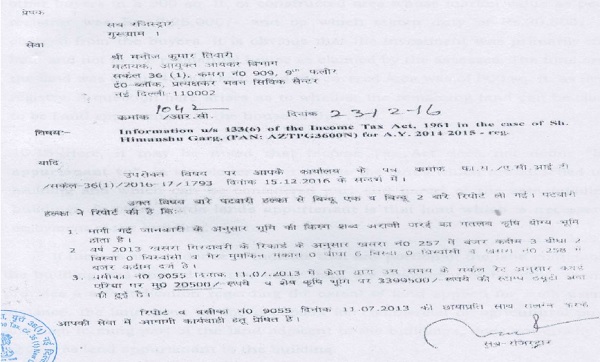 प्रेषक
सब रजिस्ट्रार
गुरूग्राम ।
सेवा
श्री मनीज कुमार तिवारी
सहायक, आयुक्त आयकर विभाग
सर्कल 36 (1), कमरा नं0 909, 9th फलौर
ई0 ब्लॉक, प्रत्यक्षकर भवन सिविक सैन्टर
नई दिल्ली 110002
क्रमांक 1042 /आर.सी. दिनांक 23-12-16
विषयः- Information u/s 133(6) of the Income Tax Act, 1961 in the case of Sh.
Himanshu Garg, (PAN: AZTPG3600N) for A.Y. 2014 2015 - reg.
यादि
उपरोक्त विषय पर आपके कार्यालय के पत्र क्रमांक फा.प./ए.सी.आई.टी
/सर्कल-36(1)/2016-17/1793 दिनांक 15.12.2016 के सन्दर्भ में।
उक्त विषय बारे पटवारी हल्का से बिन्दू एक व बिन्दू 2 बारे रिपोर्ट ली गई। पटवारी
हल्का ने रिपोर्ट की है कि:
1. मांगी गई जानकारी के अनुसार भूमि की किस्म शब्द अराजी जरई का मतलब कृषि योग्य भूमि
होता है।
2 वर्ष 2013 खसरा गिरदावरी के रिकार्ड के अनुसार खसरा नं0 257 में बंजर कदीम 3 बीघा 2
बिस्वा 0 बिस्वांसी व गैर मुमकिन मकान 0 बीघा 6 बिस्वा 0 बिस्वांसी व खसरा नं0 258 में
बंजर कदीम दर्ज है।
3. वसीका नं0 9055 दिनांक 11.07.2013 में क्रेता द्वारा उस समय के सर्कल रेट अनुसार कवर्ड
एरिया पर मु0 20500/-रूपये व शेष कृषि भूमि पर 3399500/-रूपये की स्टाम्प डयूटी अदा
की हुई है।
रिपोर्ट व वसीका नं0 9055 दिनांक 11.07.2013 की छायाप्रति साथ संलग्न करके
आपकी सेवा में आगामी कार्यवाही हेतु प्रेषित है।
सब-रजिस्ट्रार